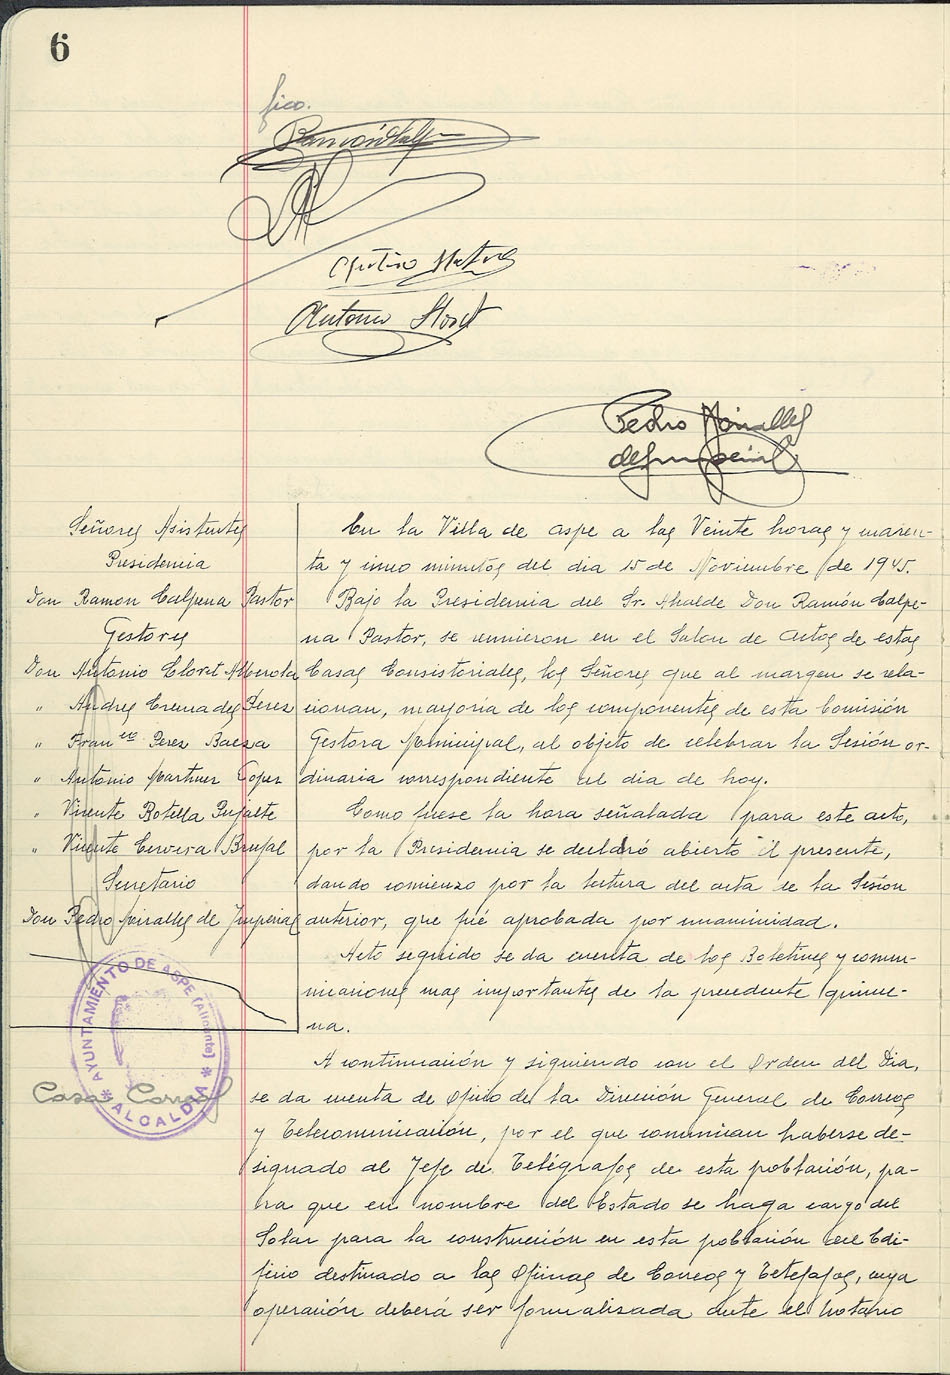 6
fico.
Ramón Calp
Antonio Martinez
Antonio Lloret
Pedro Miralles
de Imperial
Señores Asistentes
Presidencia
Don Ramon Calpena Pastor
Gestores
Don Antonio Lloret Alberola
" Andres Cremades Perez
" Fran co Perez Baeza
" Antonio Martinez Lopez
" Vicente Botella Pujalte
" Vicente Cervera Brufal
Secretario
Don Pedro Miralles de Imperial
AYUNTAMIENTO DE ASPE (Alicante)
* ALCALDIA *
Casa Correos
En la Villa de Aspe a las Veinte horas y cuaren-
ta y cinco minutos del dia 15 de Noviembre de 1945.
Bajo la Presidencia del Sr. Alcalde Don Ramón Calpe-
na Pastor, se reunieron en el Salon de actos de estas
Casas Consistoriales, los Señores que al margen se rela-
cionan, mayoría de los componentes de esta Comisión
Gestora Municipal, al objeto de celebrar la Sesión or-
dinaria correspondiente al dia de hoy.
Como fuese la hora señalada para este acto,
por la Presidencia se declaró abierto el presente,
dando comienzo por la lectura del acta de la Sesión
anterior, que fué aprobada por unaminidad.
Acto seguido se da cuenta de los Boletines y comu-
nicaciones mas importantes de la precedente quince-
na.
A continuación y siguiendo con el Orden del Dia,
se da cuenta de oficio de la Dirección General de Correos
y Telecomunicación, por el que comunican haberse de-
signado al Jefe de Telégrafos de esta población, pa-
ra que en nombre del Estado se haga cargo del
Solar para la construcción en esta población del Edi-
ficio destinado a las Oficinas de Correos y Telefafos, cuya
operación deberá ser formalizada ante el Notario